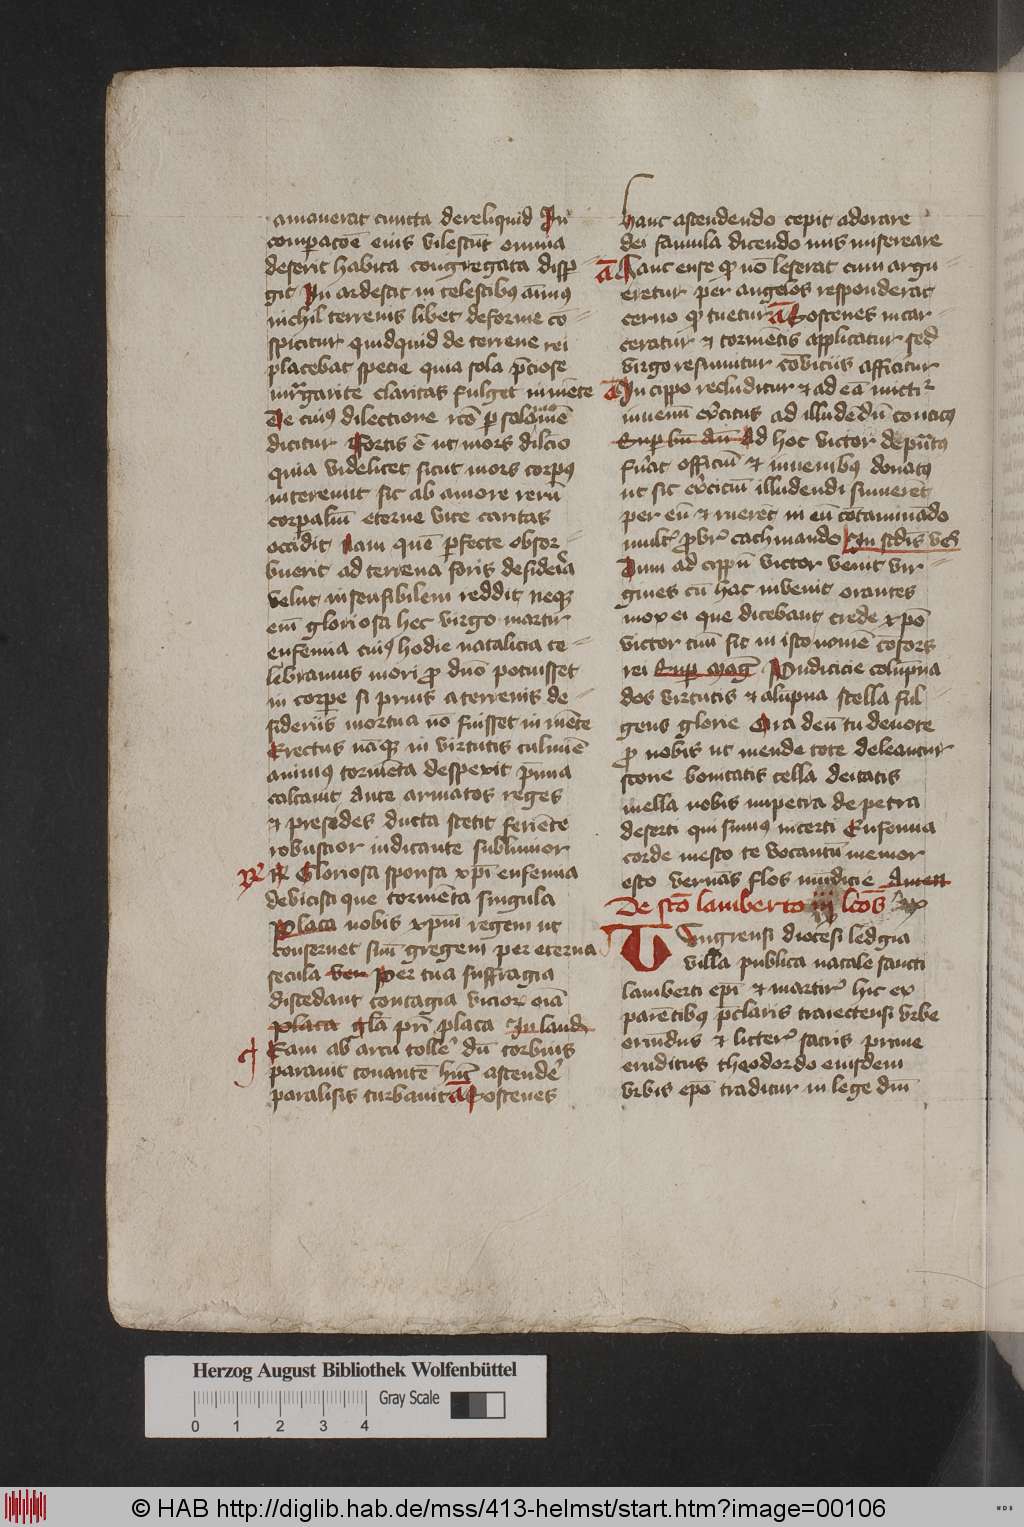 amauerat cuncta dereliquid In
comꝑacōe eius vilescūt omnia
deserit habita congregata disp
git In ardescit in celestibꝰ aīmꝰ
nichil terrenis libet deforme cō
spicitur quidquid de terrene rei
placebat specie quia sola p̄ciose
mrgarite claritas fulget in mēte
De cuiꝰ dilectione rcō ꝑ salomōē
dicitur Fortis ē ut mors dilcīo
quia videlicet sicut mors corpꝰ
interemit sic ab amore rerū
corꝑaliū eterne vite caritas
occidit Nam quē ꝑfecte obsor
buerit ad terrena foris desideria
velut insensibilem reddit neqꝫ
em̄ gloriosa hec virgo martir
eufemia cuiꝰ hodie natalicia ce
lebramus mori ꝓ dn̄o potuisset
in corꝑe si prius a terrenis de
sideriis mortua nō fuisset in mēte
Erectus nāqꝫ in virtutis culmīe
animus tormēta despexit p̄mia
calcauit Ante armatos reges
et presides ducta stetit feriēte
robustior iudicante sublimior
R̄ Gloriosa sponsa xp̄i eufemia
deuicisti que tormēta singula
Placa nobis xpm̄ regem ut
conseruet suū gregem per eterna
secula ver Per tua suffragia
discedant contagia vicioꝝ oīa
placa gl̄a pr̄i placa In laud
Nam ab arcu tolle dū corbuis
parauit conantē hūc ascendē
paralisis turbauit A Sostenes
hanc ascendendo cepit adorare
dei famula dicendo mis miserere
A Hanc ense qͥ nō leserat cum argu
eretur per angelos responderat
cerno qͥ tuetur A Sostenes incar
ceratur et tormētis applicatur sed
virgo resumitur cōuiciis afficitur
A In cippo recluditur et ad eā mictr
iuuenū exͬcitus ad illudēdū concitꝰ
Eu p bn̄ dn̄ Ad hoc victor deputꝰ
fuͣt officiū et iuuenibꝰ donatꝰ
ut sic exͬciciū illudendi sumerēt
per eū et rueret in eū cōtaminādo
mult ꝓbr cachinando In scdis ves
Dum ad cippū victor venit vir
gines cū hac inuenit orantes
mox ei que dicebant crede xpō
victor tuū sit in isto nomē cōsors
rei Eu p mag Pudicicie colupna
dos virtutis et alūpna stella ful
gens glorie Ora deū tu deuote
ꝓ nobis ut mende tote deleantur
scorie bonitatis cella deitatis
mella nobis impetra de petra
deserti qui sumꝰ incerti Eufemia
corde mesto te vocantū memor
esto vernās flos mūdicie Amen
De sctō lamberto iij lcōs
Tungrensi diocesi ledgia
villa publica natale sancti
lamberti epī et martir hic ex
parētibꝰ p̄claris traiectensi vrbe
oriūdus et litter sacris prime
eruditus theodordo eiusdem
vrbis epō traditur in lege dm̄
Herzog August Bibliothek Wolfenbüttel
Gray Scale
0 1 2 3 4
© HAB http://diglib.hab.de/mss/413-helmst/start.htm?image=00106